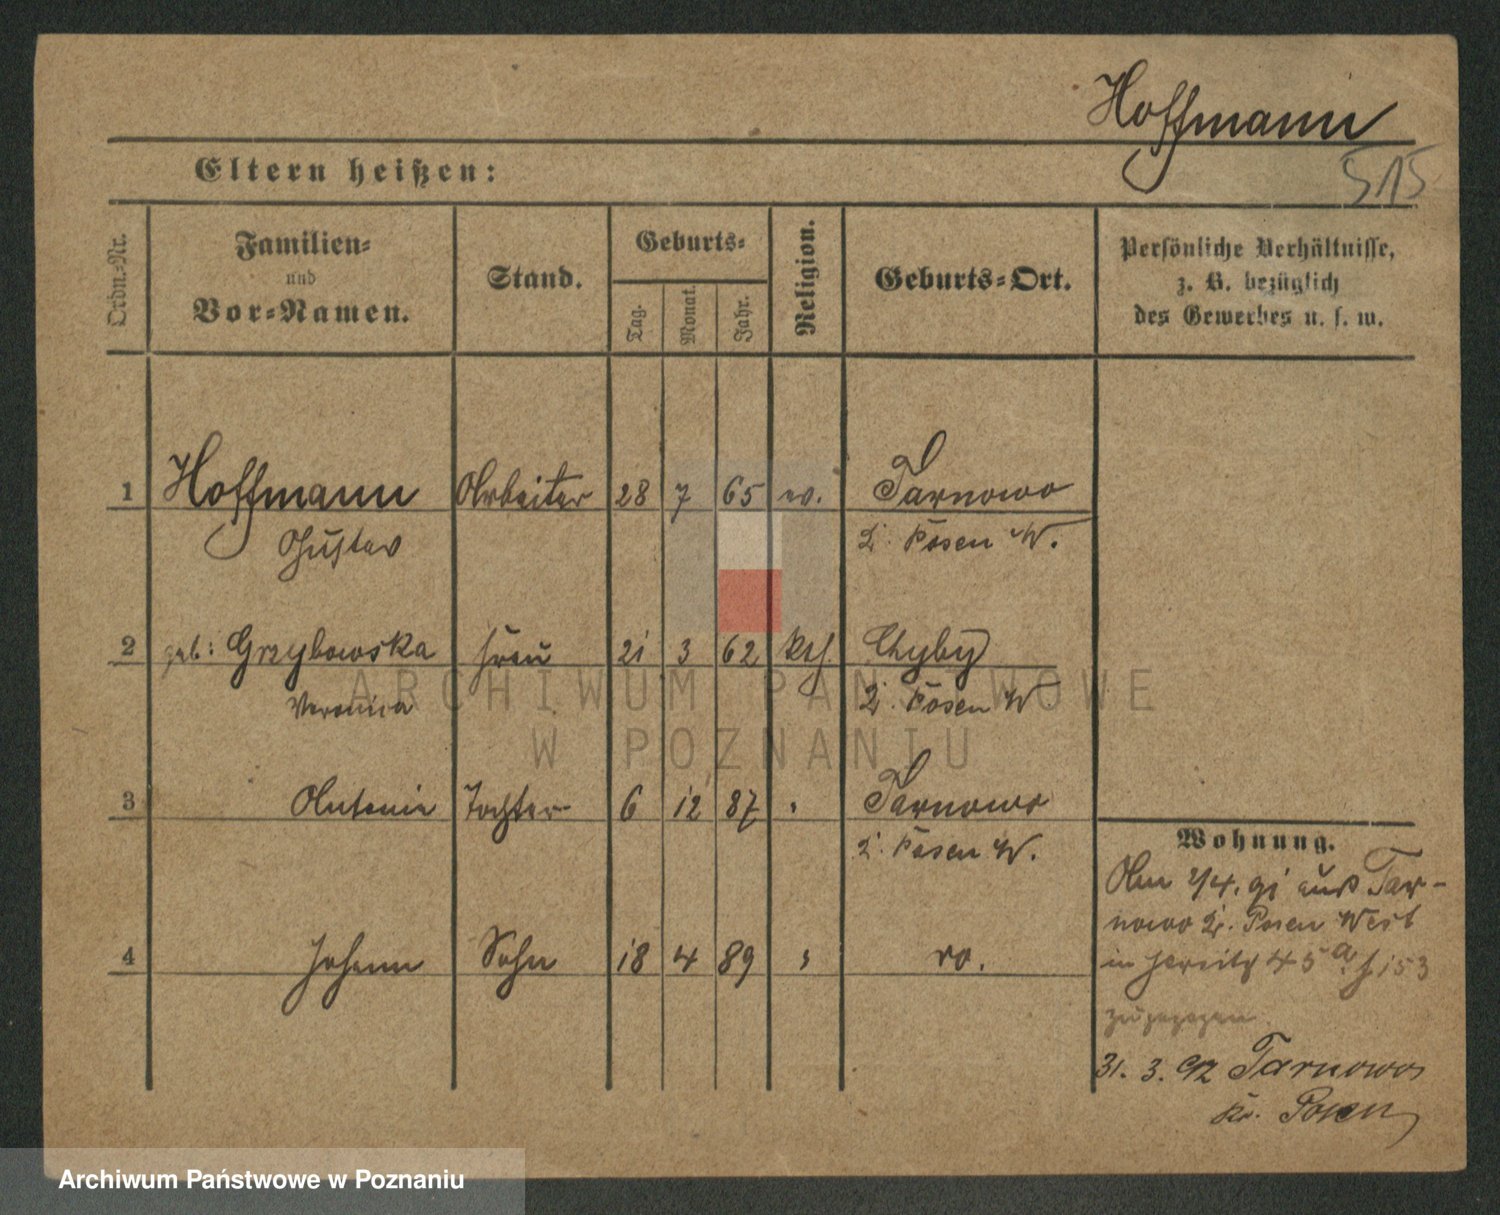 Hoffmann
515
Eltern heißen:
Ordn.-Nr.
Familien-
und
Vor-Namen.
Stand.
Geburts-
Tag.
Monat.
Jahr.
Religion.
Geburts-Ort.
Persönliche Verhältnisse,
z. B. bezüglich
des Gewerbes u. s. w.
1 Hoffmann Arbeiter 28 7 65 ev. Tarnowo
Gustav Posen W.
2 geb: Grzybowska Frau 21 3 62 kth. Chyby
Veronica Posen W
3 Antonie Tochter 6 12 87 " Tarnowo
Posen W.
4 Johann Sohn 18 4 89 " do.
Wohnung.
Am 2/4. 91 aus Tar-
nowo Posen West
in 45 a 153
zugezogen
31. 3. 92 Tarnowo
Kr. Posen
ARCHIWUM PAŃSTWOWE
W POZNANIU
Archiwum Państwowe w Poznaniu